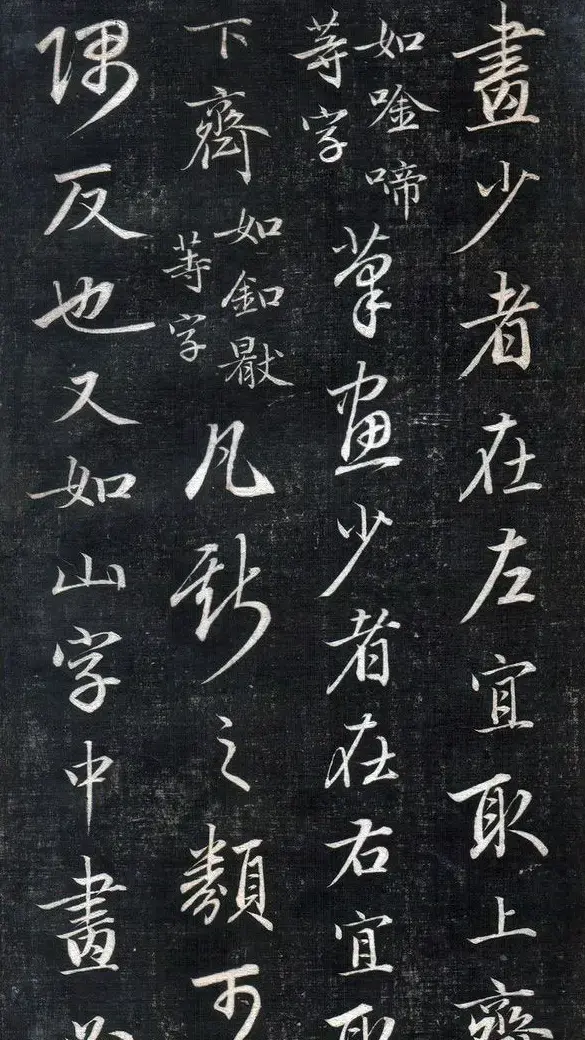 畫少者在左宜取上齊
如唫啼
等字
筆畫少者在右宜取
下齊
如釦
等字
凡斯之類可
隅反也又如山字中畫